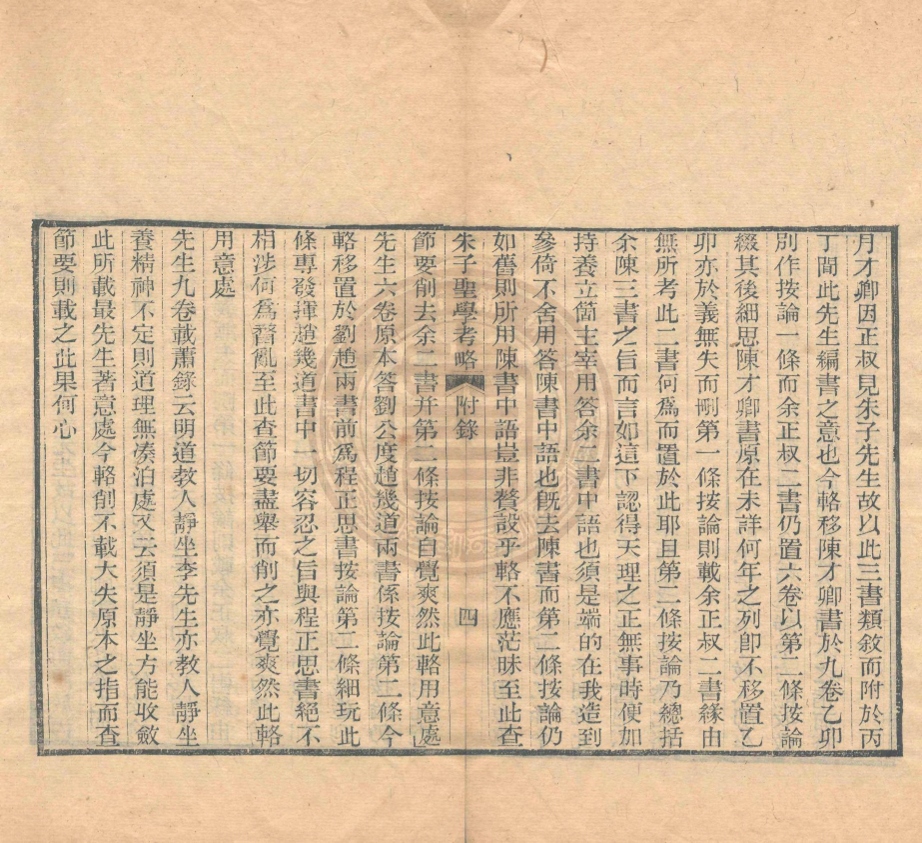 月才卿因正叔見朱子先生故以此三書類敘而附於丙
丁間此先生編書之意也今輅移陳才卿書於九卷乙卯
別作按論一條而余正叔二書仍置六卷以第二條按論
綴其後細思陳才卿書原在未詳何年之列卽不移置乙
卯亦於義無失而刪第一條按論則載余正叔二書緣由
無所考此二書何爲而置於此耶且第二條按論乃總括
余陳三書之旨而言如這下認得天理之正無事時便加
持養立箇主宰用答余二書中語也須是端的在我造到
參倚不舍用答陳書中語也旣去陳書而第二條按論仍
如舊則所用陳書中語豈非贅設乎輅不應茫昧至此查
朱子聖學考略 附錄 四
節要削去余二書并第二條按論自覺爽然此輅用意處
先生六卷原本答劉公度趙幾道兩書係按論第二條今
輅移置於劉趙兩書前爲程正思書按論第二條細玩此
條專發揮趙幾道書中一切容忍之旨與程正思書絕不
相涉何爲瞀亂至此查節要盡舉而削之亦覺爽然此輅
用意處
先生九卷載蕭錄云明道教人靜坐李先生亦教人靜坐
養精神不定則道理無湊泊處又云須是靜坐方能收斂
此所載最先生著意處今輅削不載大失原本之指而查
節要則載之此果何心